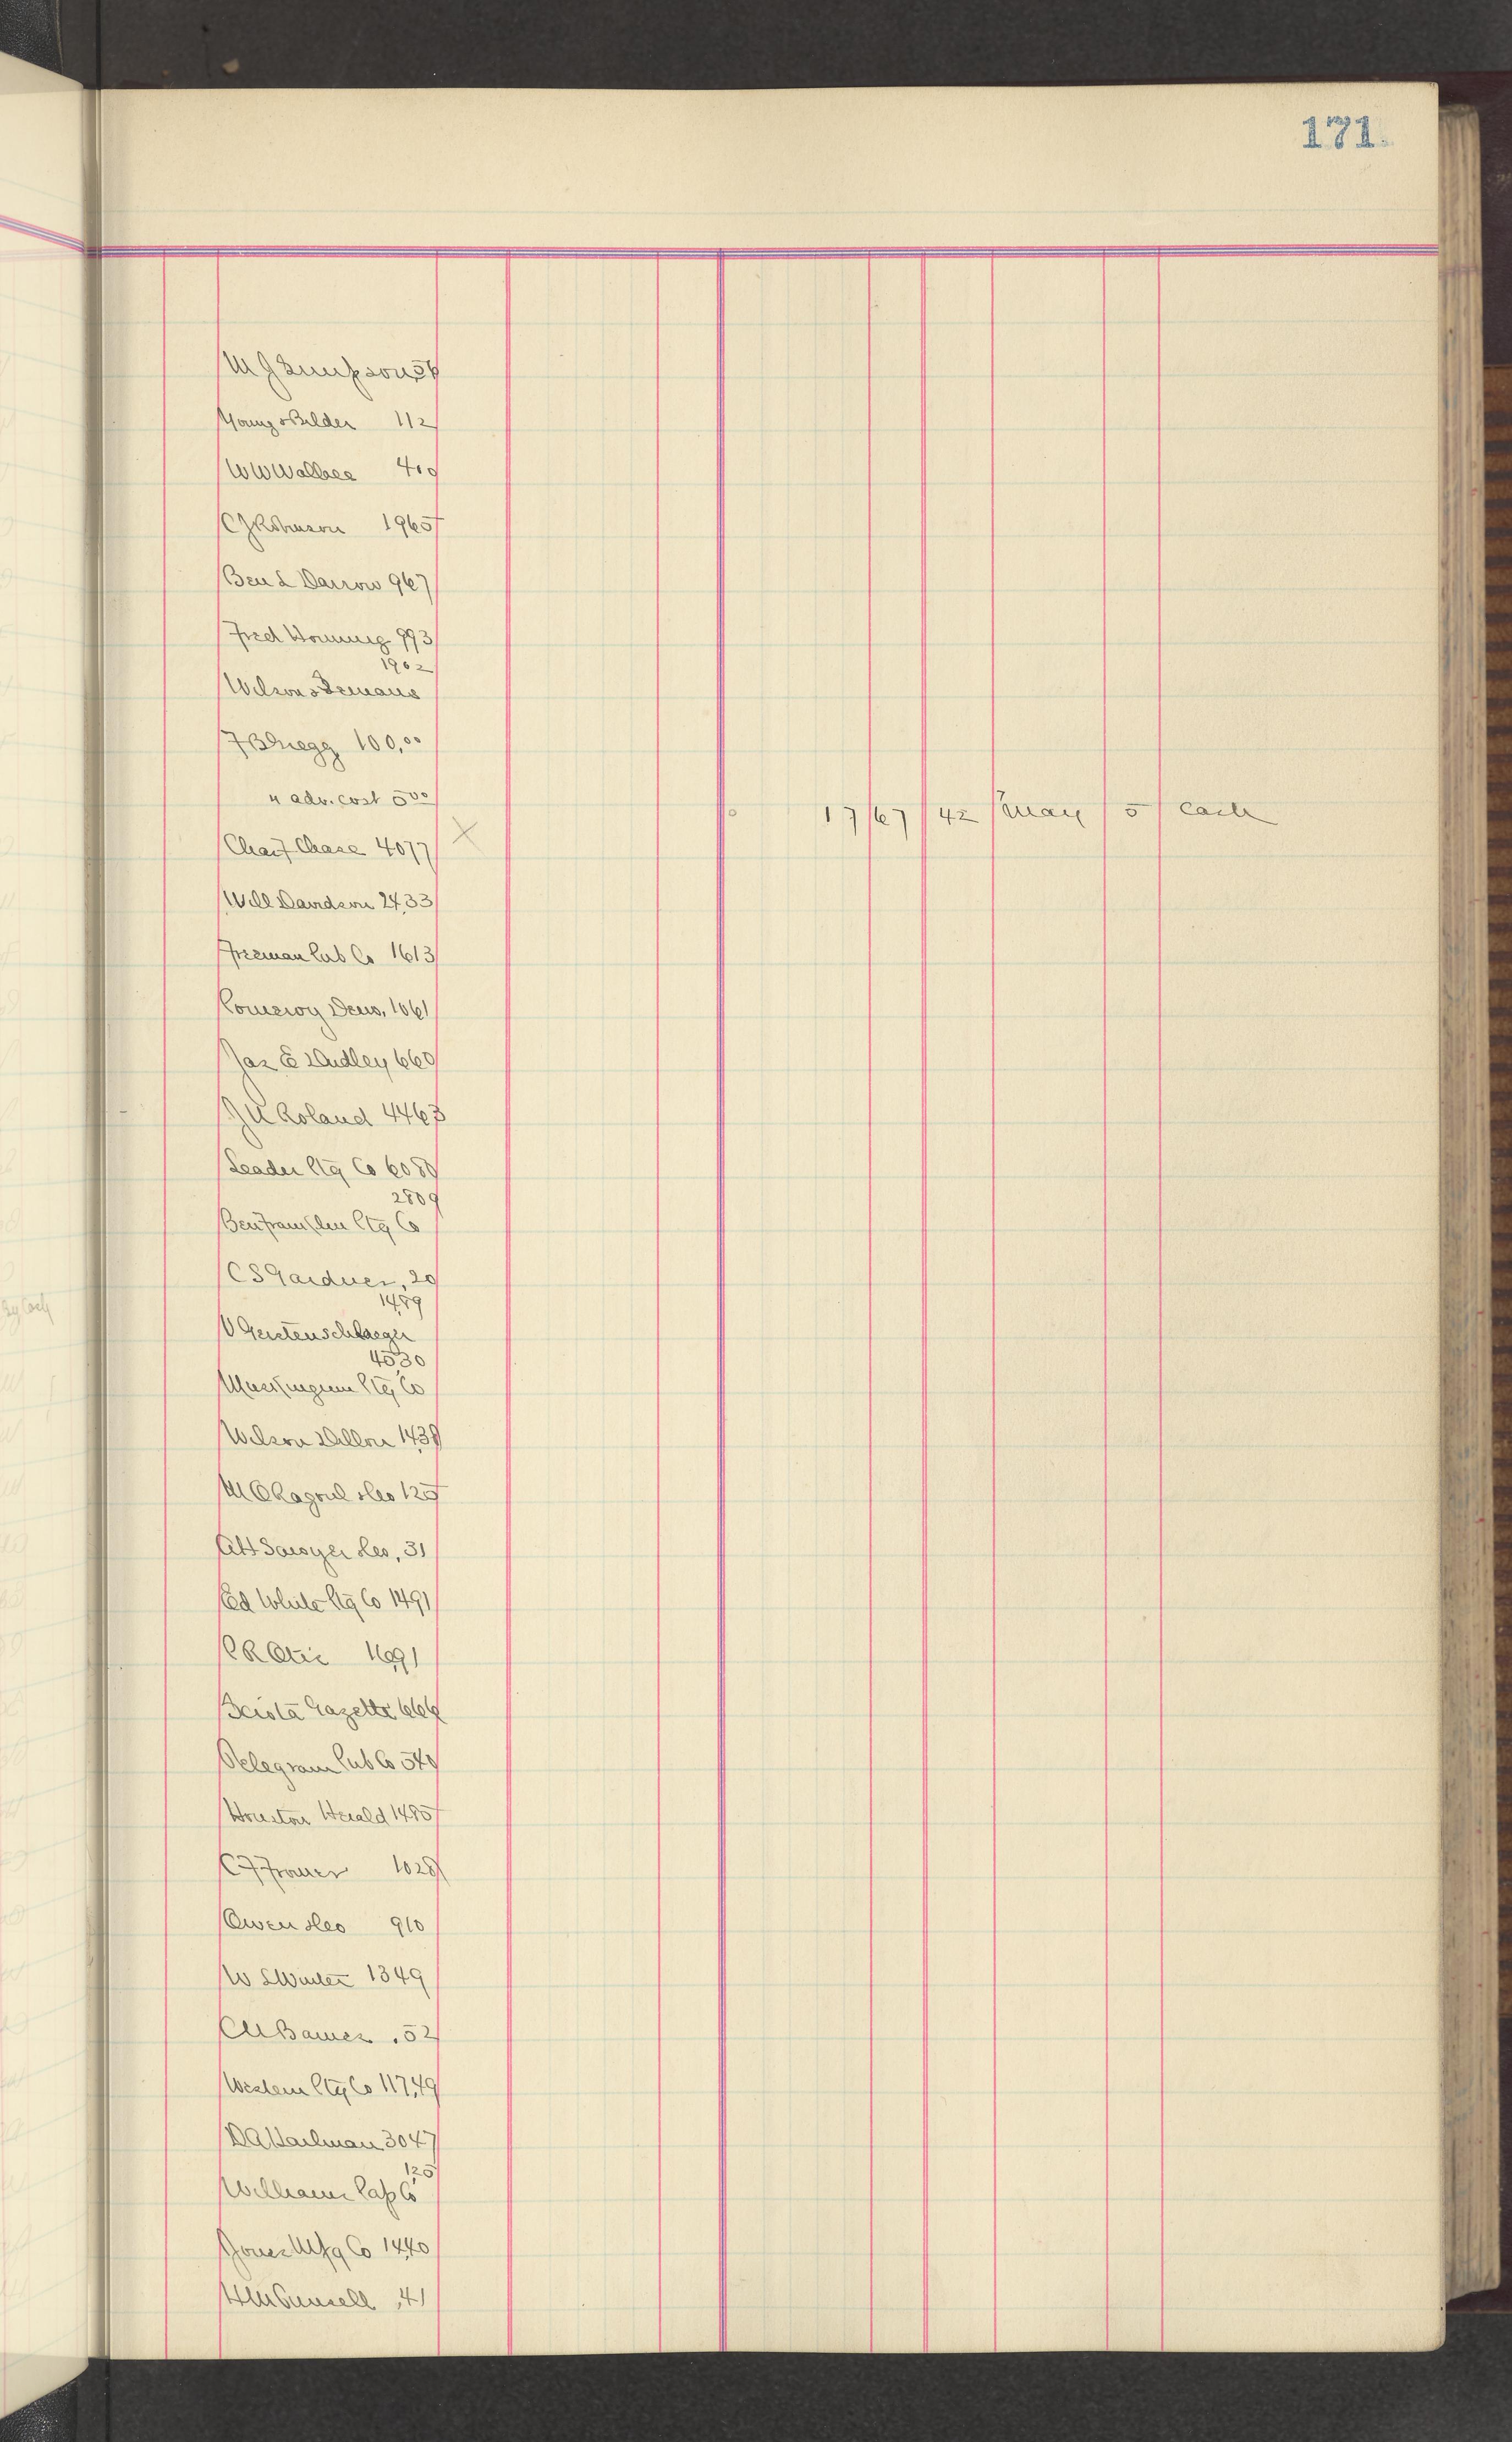 171
W J Simpson 56
Young & Bilder 112
W W Wallace 410
C J Robinson 1965
Ben L Darrow 967
Fred Hornung 993
1902
Wilson & Semans
F B Gregg 100,00
" adv. cost 500
17 67 42 May 5 Cash
Chas F Chase 4077
Will Davidson 24,33
Freeman Pub Co 1613
Pomeroy Demo, 1061
Jas E Dudley 660
J M Roland 4463
Leader Ptg Co 6080
2809
Ben Franklin Ptg Co
C S Gardner, 20
14,89
V Gerstenschlaeger
4530
Muskingum Ptg Co
Wilson Dillon 14,38
M O Ragoul & Co 125
A H Sawyer & Co, 31
Ed White Ptg Co 1491
C R Otis 16,91
Scioto Gazette 666
Telegram Pub Co 540
Houston Herald 1485
C F 1028
Owen & Co 910
W S Winter 1349
C M Bames .52
Western Ptg Co 117,49
D A Hailman 3047
1,25
Williams Pap Co
Jones Mfg Co 14,40
H M Gunsell ,41